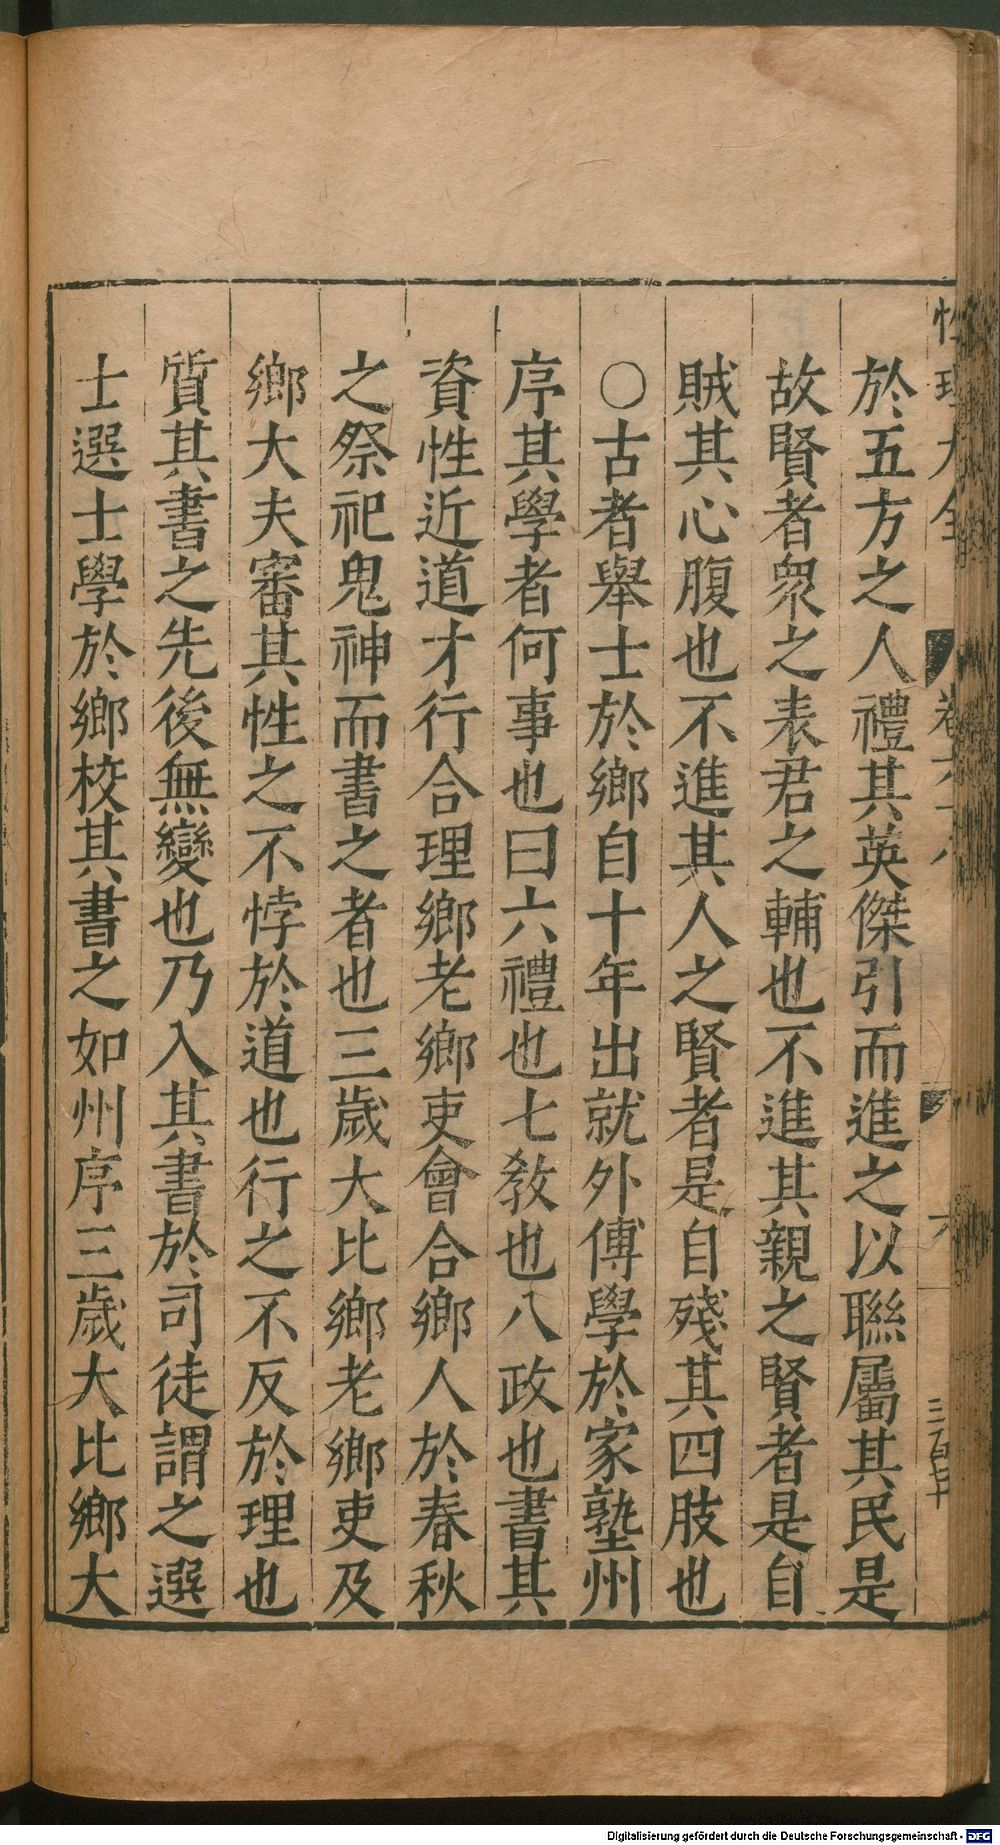 性理大全 卷六十八 六 三百七十
於五方之人禮其英傑引而進之以聯屬其民是
故賢者衆之表君之輔也不進其親之賢者是自
賊其心腹也不進其人之賢者是自殘其四肢也
○古者舉士於鄉自十年出就外傅學於家塾州
序其學者何事也曰六禮也七教也八政也書其
資性近道才行合理鄉老鄉吏會合鄉人於春秋
之祭祀鬼神而書之者也三歲大比鄉老鄉吏及
鄉大夫審其性之不悖於道也行之不反於理也
質其書之先後無變也乃入其書於司徒謂之選
士選士學於鄉校其書之如州序三歲大比鄉大
Digitalisierung gefördert durch die Deutsche Forschungsgemeinschaft - DFG